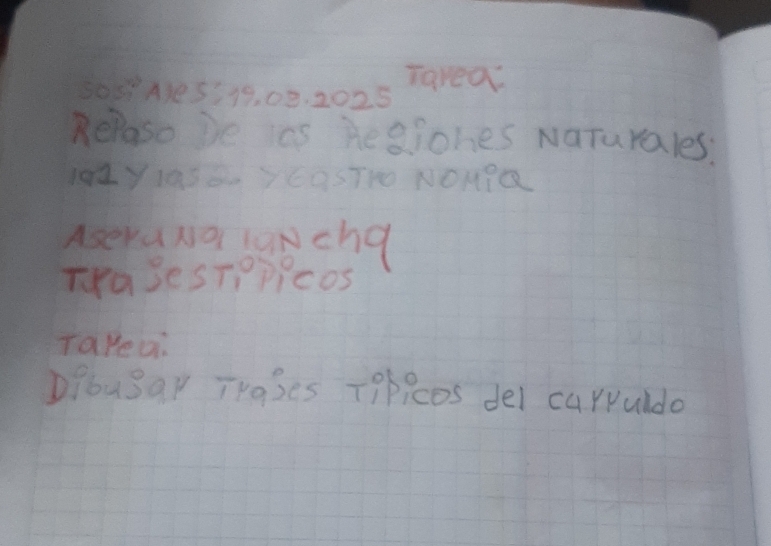 Tarea:
sosiales: 19.03.2025
Repaso De las Regiones Naturales:
la 1 y las 2 y Gastro NoMia
Aser una lancha
Trajes Tipicos
Tarea:
Dibujar Trajes Tipicos del carruldo